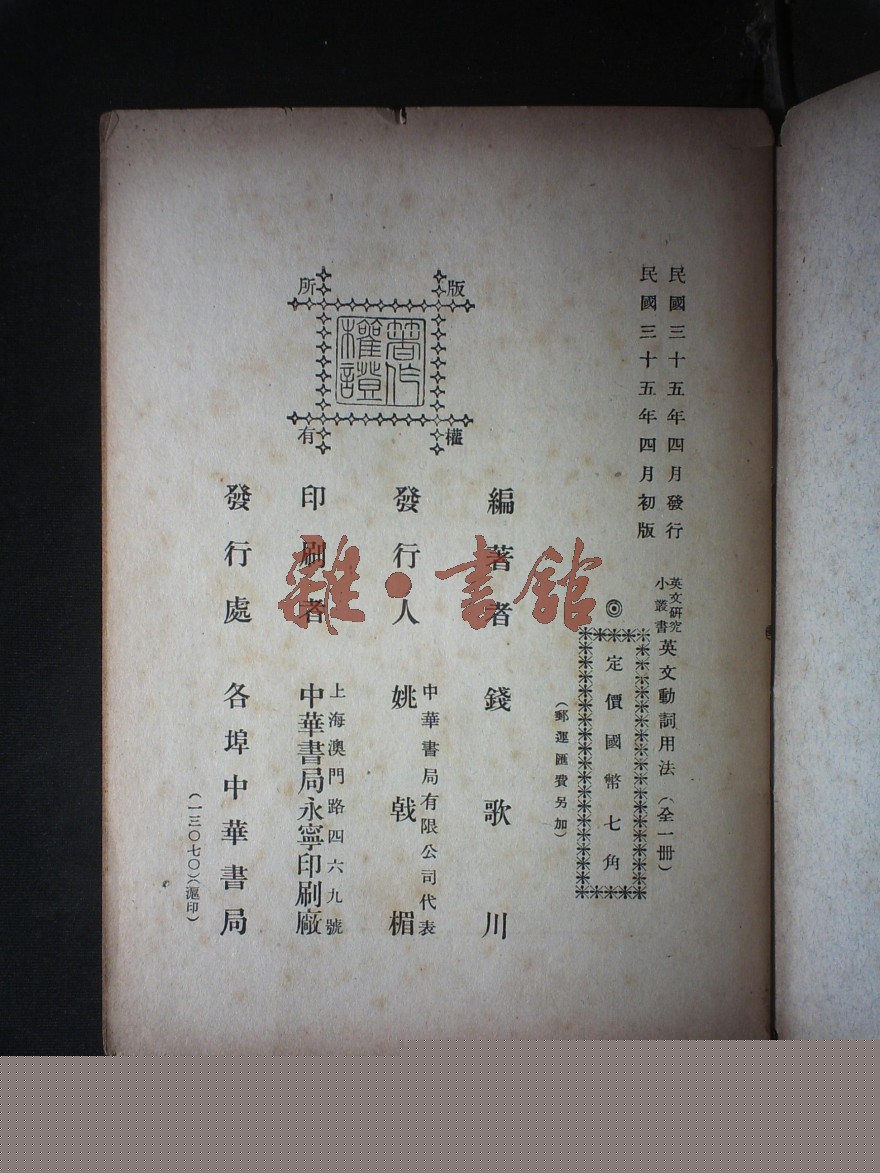 民國三十五年四月發行
民國三十五年四月初版
英文研究
小叢書
英文動詞用法（全一册）
◎
定價國幣七角
（郵運匯費另加）
編著者 錢歌川
發行人 中華書局有限公司代表
姚戟楣
印刷者 上海澳門路四六九號
中華書局永寧印刷廠
發行處 各埠中華書局
（一三〇七〇）（滬印）
版權所有
著作權證
雜·書館